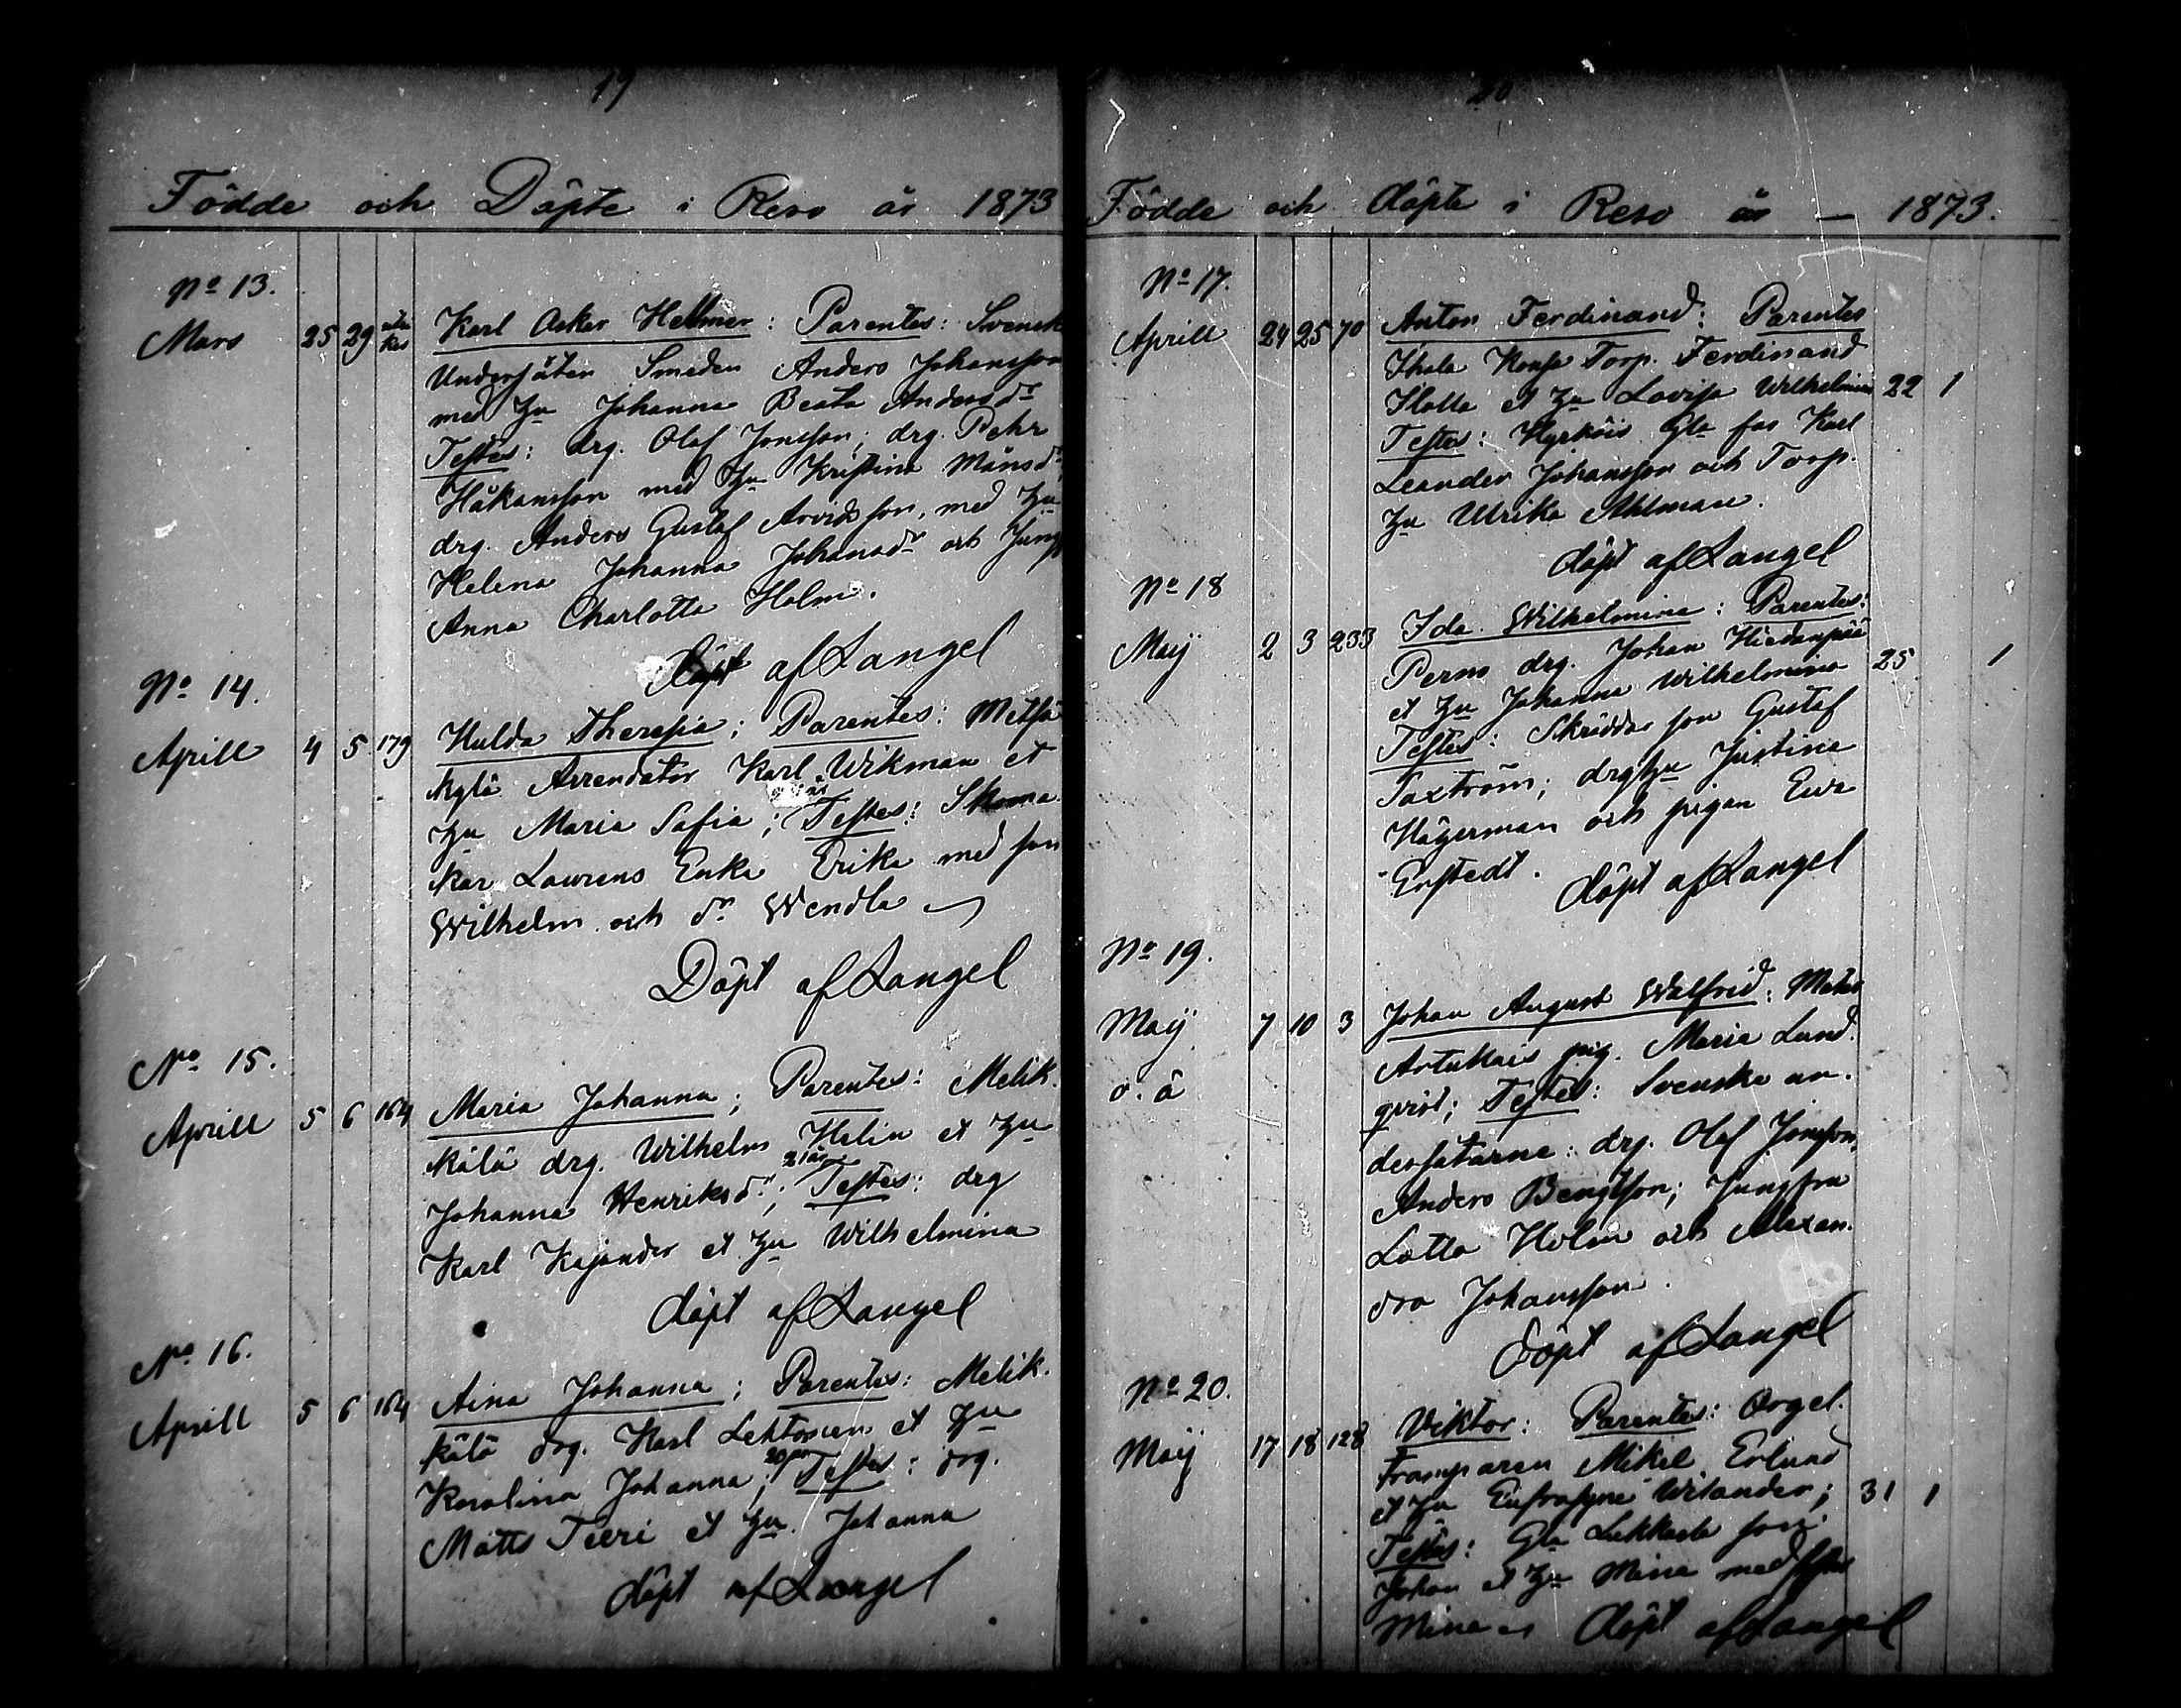 19
Födde och Döpte i Reso år 1873
No 13.
Mars 25 29 Karl Oskar Hellmer: Parentes: Svensk
Undersåten Smeden Anders Johansson
med hu Johanna Beata Andersdr
Testes: drg. Olof Jonsson; drg. Pehr
Håkansson med hu Kristina Månsdr
drg. Anders Gustaf Arvidsson, med hu
Helena Johanna Johansdr och Jungf
Anna Charlotta Holm.
döpt af Langel
No 14.
Aprill 4 5 179 Hulda Theresia; Parentes: Metsä
kylä Arrendator Karl Wikman et
hu Maria Sofia; Testes: Skoma
kar Laurens Enka Erika med son
Wilhelm och dr Wendla
Döpt af Langel
No 15.
Aprill 5 6 164 Maria Johanna; Parentes: Melik.
kälä drg. Wilhelm Helin et hu
Johanna Henriksdr; 21 år Testes: drg
Karl Kajander et hu Wilhelmina
döpt af Langel
No 16.
Aprill 5 6 164 Aina Johanna; Parentes: Melik.
kälä drg. Karl Lehtonen et hu
Karolina Johanna; Testes: drg.
Matts Tieri et hu Johanna
döpt af Langel
20
Födde och döpte i Reso år — 1873.
No 17.
Aprill 24 25 70 Anton Ferdinand: Parentes
Ihala Torp. Ferdinand
et hu Lovisa Wilhelmina 22 1
Testes: Hyrköis Gla fas Karl
Leander Johansson och Torp.
hu Ulrika Ahlman.
döpt af Langel
No 18
Maij 2 3 233 Ida Wilhelmina: Parentes:
Perno drg. Johan Hiedanpää
et hu Johanna Wilhelmina 25 1
Testes: Skräddar son Gustaf
Saxtröm; drghu Justina
Hägerman och pigan Eva
Enstedt. döpt af Langel
No 19.
Maij 7 10 3 Johan August Walfrid: Mater
o. ä Artukais pig. Maria Lund.
qvist; Testes: Svenske un.
dersåtarne: drg. Olof Jonsson,
Anders Bengtsson; Jungfru
Lotta Holm och Alexan.
dra Johansson.
döpt af Langel
No 20.
Maij 17 18 128 Viktor: Parentes: Orgel.
tramparen Mikel Erlund
et hu Eufrosyne Witander; 31 1
Testes: Gla Lukkarla son.
Johan et hu Mina med
Mina döpt af Langel